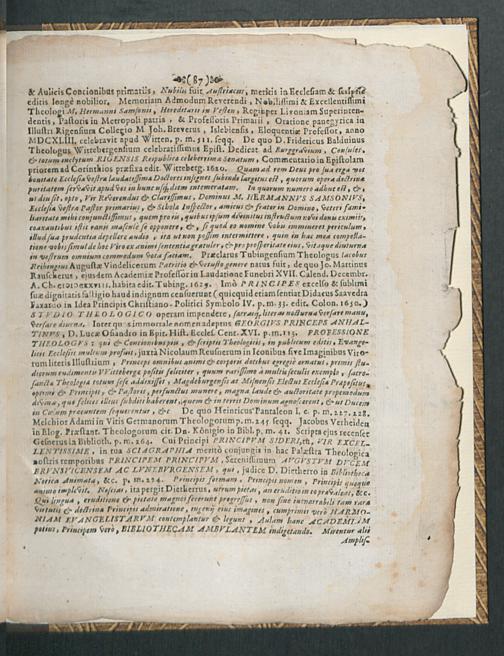 (87)
& Aulicis Concionibus primariis, Nobilis fuit Austriacus, meritis in Ecclesiam & scriptis
editis longè nobilior, Memoriam Admodum Reverendi, Nobilissimi & Excellentissimi
Theologi M. Hermanni Samsonii, Hereditarii in Festen, Regii per Livoniam Superinten-
dentis, Pastoris in Metropoli patria, & Professoris Primarii, Oratione panegyrica in
Illustri Rigensium Collegio M. Joh. Breverus, Islebiensis, Eloquentiæ Professor, anno
MDCXLIII, celebravit apud Witten, p. m. 511. seqq. De quo D. Fridericus Balduinus
Theologus Wittebergensium celebratissimus Epist. Dedicat. ad Burggravium, Consules,
& totum inclytum RIGENSIS Reipublicæ celeberrimæ Senatum, Commentario in Epistolam
priorem ad Corinthios præfixa edit. Witteberg. 1620. Quam ad rem Deus pro sua erga vos
bonitate Ecclesiæ vestræ laudatissimæ Doctores insignes subinde largitus est, quorum opera doctrinæ
puritatem servavit apud vos in hunc usque diem intemeratam. In quorum numero adhuc est, &,
ut diu sit, opto, Vir Reverendus & Clarissimus, Dominus M. HERMANNVS SAMSONIVS,
Ecclesiæ vestræ Pastor primarius, & Scholæ Inspector, amicus & frater in Domino, veteri fami-
liaritate mihi conjunctissimus, quem pro iis, quibus ipsum divinitus instructum novi donis eximiis,
coaxantibus istis ranis masculè se opponere, &, si quid eo nomine vobis imminet periculum,
illud sua prudentia depellere audio, ita ut non possim intermittere, quin in hac mea compella-
tione vobis simul de hoc Viro ex animi sententia gratuler, & pro prosperitate ejus, vitæque diuturna
in vestrum omnium commodum vota faciam. Præclarus Tubingensium Theologus Jacobus
Reihingius Augustæ Vindelicorum Patritio & vetusto genere natus fuit, de quo Jo. Martinus
Rauscherus, ejusdem Academiæ Professor in Laudatione Funebri XVII. Calend. Decembr.
habita edit. Tubing. 1629. Imò PRINCIPES excelso & sublimi
suæ dignitatis fastigio haud indignum censuerunt (quicquid etiam sentiat Didacus Saavedra
Faxardo in Idea Principis Christiano-Politici Symbolo IV. p. m. 33. edit. Colon. 1650.)
STVDIO THEOLOGICO operam impendere, sacrasq; literas nocturna versare manu,
versare diurna. Inter quos immortale nomen adeptus GEORGIVS PRINCEPS ANHAL-
TINVS, D. Lucæ Osiandro in Epit. Hist. Eccles. Cent. XVI. p. m. PROFESSIONE
THEOLOGVS: qui & Concionibus piis, & scriptis Theologicis, in publicum editis, Evange-
licis Ecclesiis multum profuit, juxta Nicolaum Reusnerum in Iconibus sive Imaginibus Viro-
rum literis Illustrium, Princeps omnibus animi & corporis dotibus egregiè ornatus, primis stu-
diorum rudimentis VVittebergæ positis feliciter, quum rarissimo à multis seculis exemplo, sacro-
sanctæ Theologiæ totum sese addixisset, Magdeburgensis ac Misnensis Electus Ecclesiæ Præpositus,
optimi & Principis, & Pastoris, perfunctus munere, magna laude & auctoritate propemodum
divina, quo felices illius subditi haberent, quem & in terris Dominum agnoscerent, & ut Ducem
in Cœlum præeuntem sequerentur, &c. De quo Heinricus Pantaleon l. c. p. m. 227. 228.
Melchior Adami in Vitis Germanorum Theologorum, p. m. 245 seqq. Jacobus Verheiden
in Elog. Præstant. Theologorum cit. Da. Königio in Bibl. p. m. 41. Scripta ejus recenset
Gesnerus in Biblioth. p. m. 264. Cui Principi PRINCIPVM SIDERI, VIR EXCEL-
LENTISSIME, in tua SCIAGRAPHIA meritò conjungis in hac Palæstra Theologica
nostris temporibus PRINCIPEM PRINCIPVM, Serenissimum AVGVSTVM DVCEM
BRVNSVICENSEM AC LVNEBVRGENSEM, qui, judice D. Dietherro in Bibliotheca
Norica Animata, &c. p. m. 224. Principis formam, Principis nomen, Principis quoque
animo implevit. Nescias, ita pergit Dietherrus, utrum pietas, an eruditio in eo prævaleat, &c.
Qui lingua, eruditione & pietate magnos fecerunt progressus, non sine inenarrabili tam raræ
virtutis & doctrinæ Principis admiratione, ingenij ejus imagines, cumprimis verò HARMO-
NIAM EVANGELISTARVM contemplantur & legunt, Aulam hanc ACADEMIAM
potius, Principem verò, BIBLIOTHECAM AMBVLANTEM indigetando. Mirentur alii
Amplis.